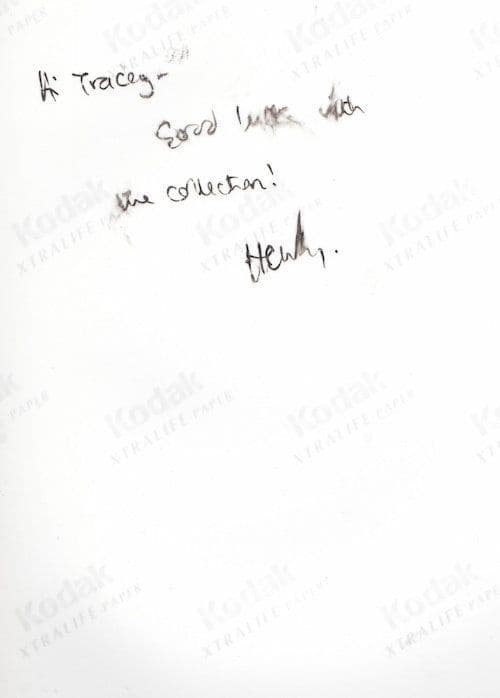 Hi Tracey -
Good luck with
the collection!
Henry.
PAPER
Kodak
XTRALIFE PAPER
Kodak
XTRALIFE PAPER
Kodak
XTRALIFE PAPER
Kodak
XTRALIFE PAPER
Kodak
XTRALIFE PAPER
PAPER
Kodak
XTRALIFE PAPER
Kodak
XTRALIFE PAPER
Kodak
XTRALIFE PAPER
Kodak
XTRALIFE PAPER
Kodak
XTRALIFE PAPER